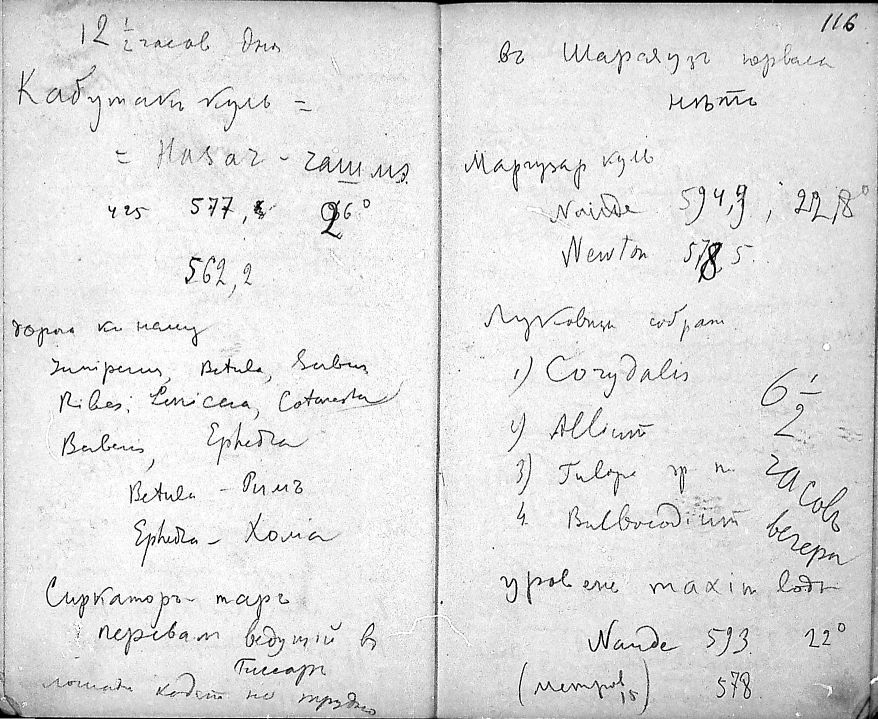 12 1/2 часов дня
Кабутанъ куль =
= Назаг - чашма
425 577, 26°
562,2
дорога къ нему
Juniperus, Betula, Sorbus
Ribes, Lonicera, Cotoneaster
Berberis, Ephedra
Betula - Римъ
Ephedra - Хома
Сиркаторъ таръ
перевал ведущій в
Гиссаръ
лошади ходятъ но трудно
116
въ Шараузъ
нѣтъ
Маргузар куль
Naude 594,9; 22,8°
Newton 578,5
Луковицы собрат
1) Corydalis
2) Allium
3) Tulipa
4. Bulbocodium
6 1/2
часовъ
вечера
уровень maxim воды
Naude 593 22°
578